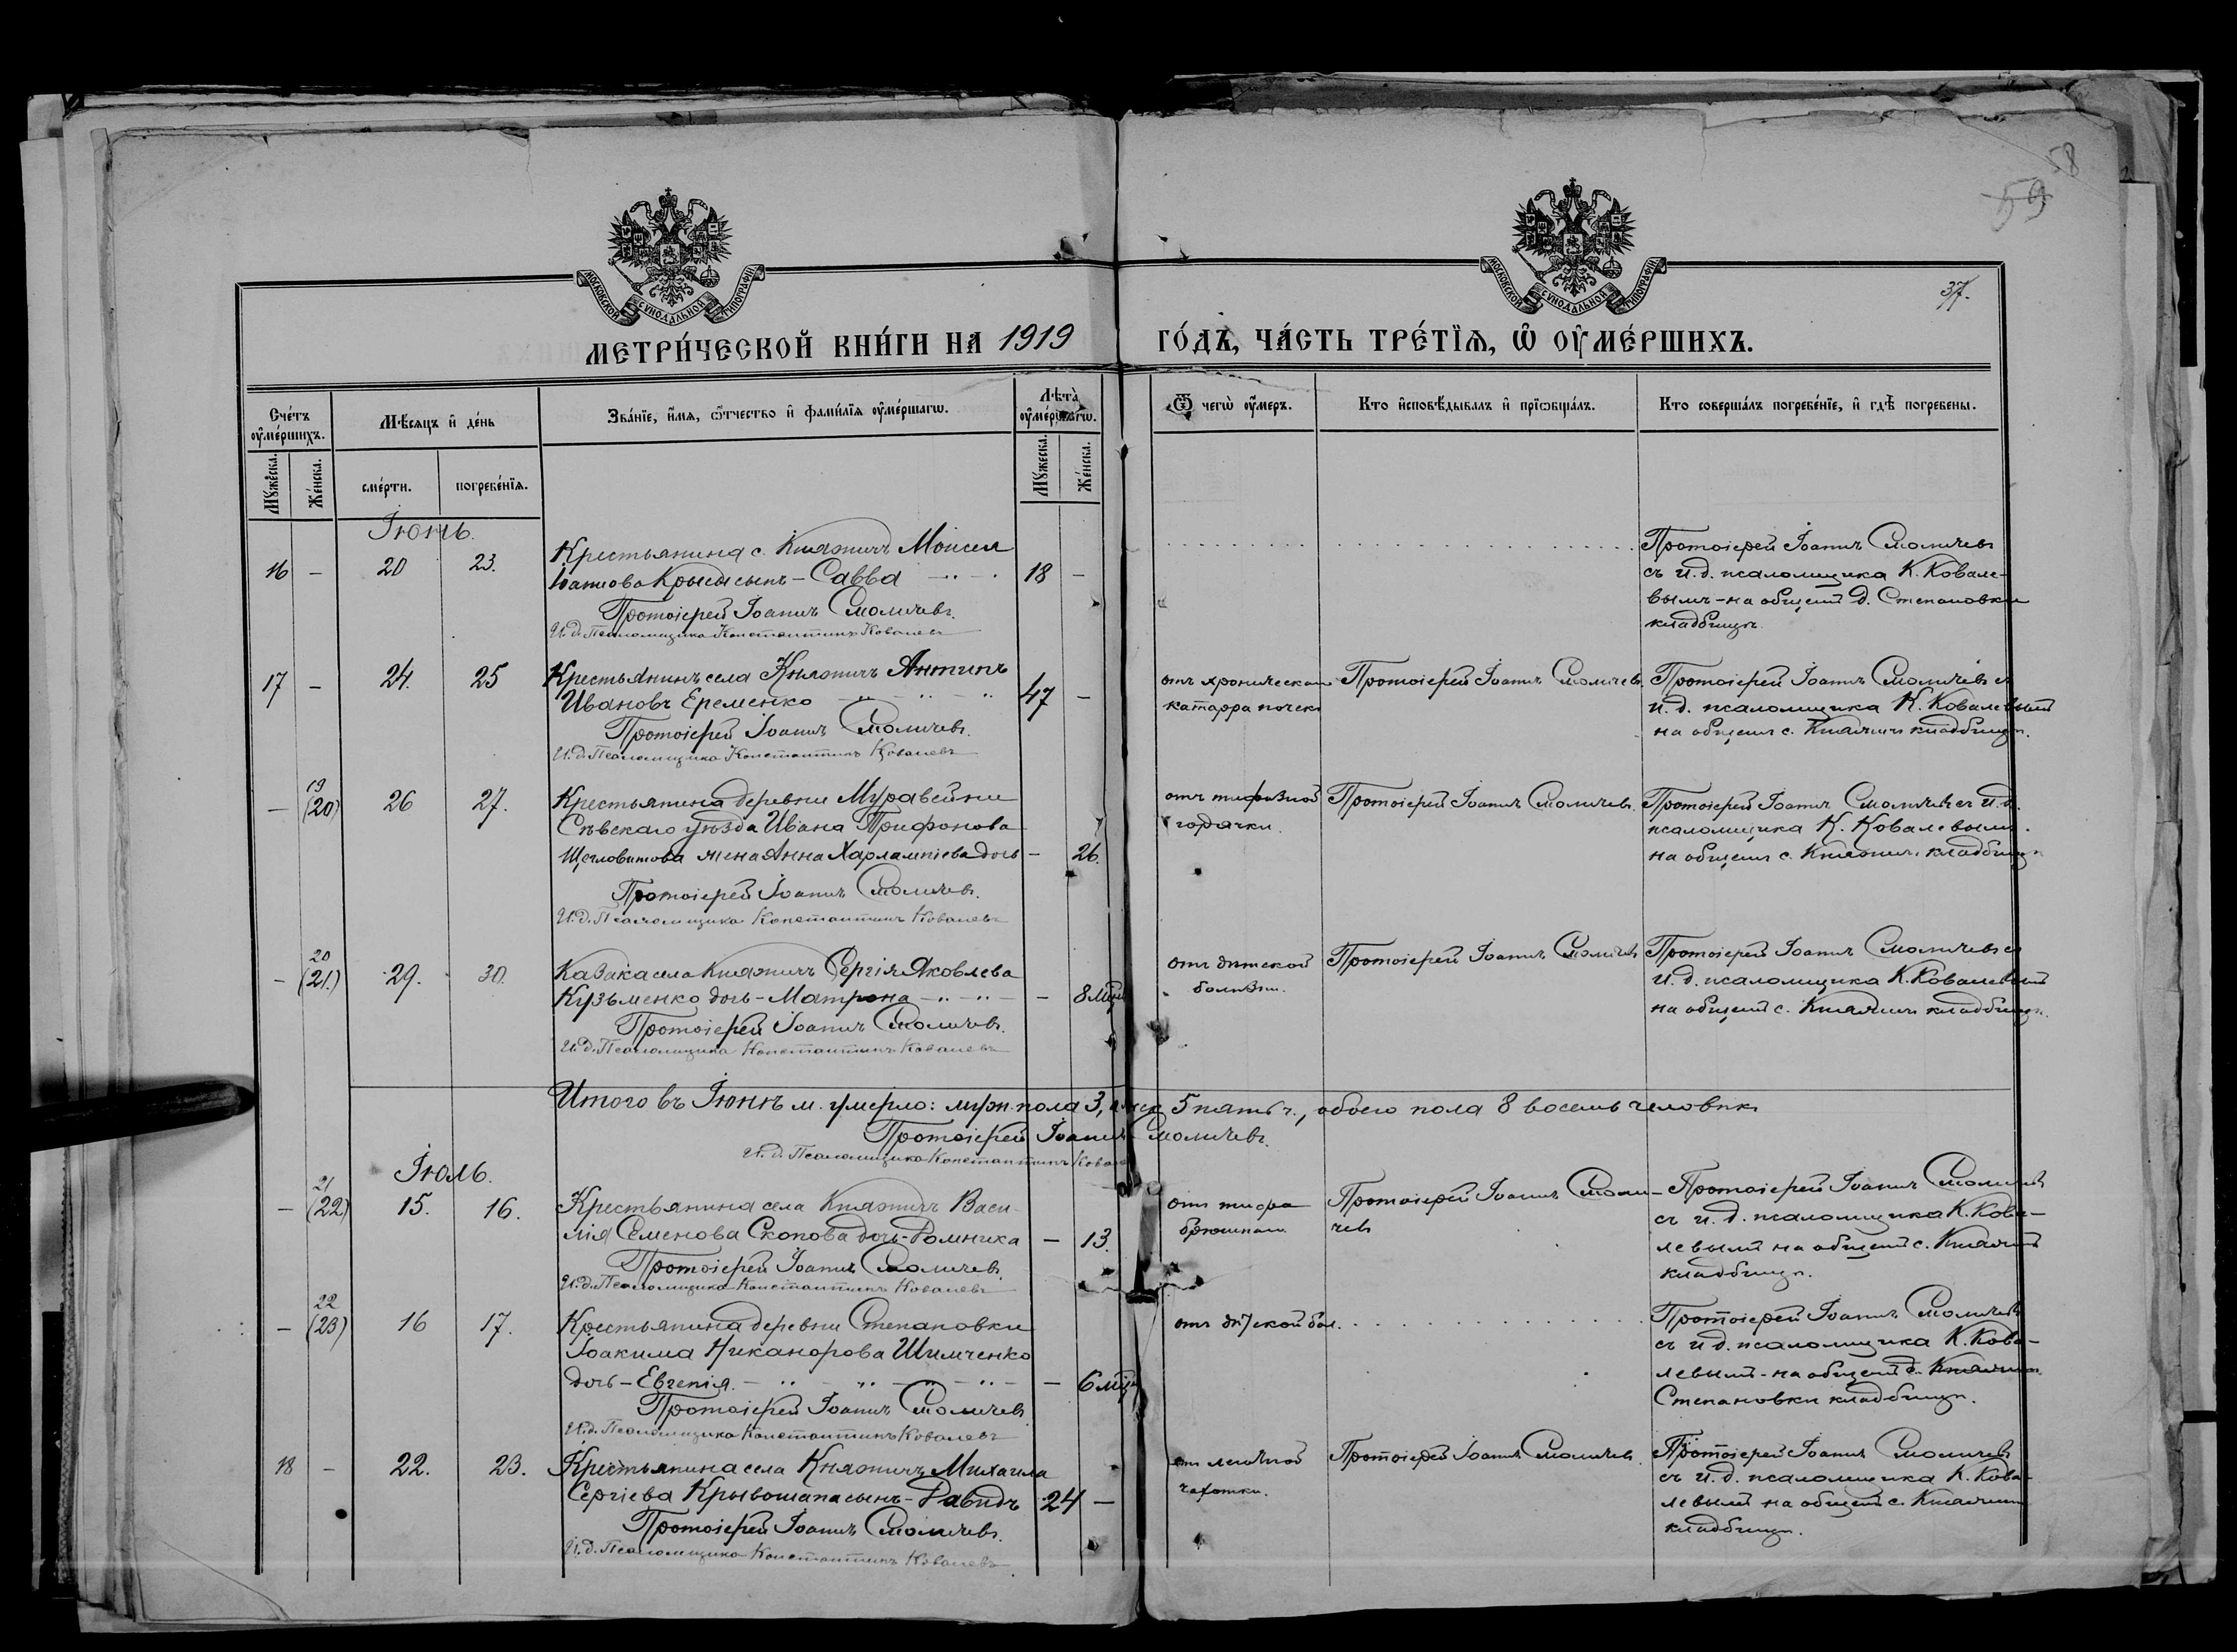 58
59
37.
МОСКОВСКОЙ СѴНОДАЛЬНОЙ ТИПОГРАФІИ
МОСКОВСКОЙ СѴНОДАЛЬНОЙ ТИПОГРАФІИ
МЕТРИ́ЧЕСКОЙ КНИ́ГИ НА 1919 ГО́ДЪ, ЧА́СТЬ ТРЕ́ТЇѦ, Ѡ҆ ОУ҆МЕ́РШИХЪ.
Сче́тъ оу҆ме́ршихъ.
Мꙋ́жеска.
Же́нска.
Мѣ́сѧцъ и҆ де́нь
сме́рти.
погребе́нїѧ.
Зва́нїе, и҆́мѧ, ѻ҆́тчество и҆ фами́лїѧ оу҆ме́ршагѡ.
Лѣ́та̀ оу҆ме́ршагѡ.
Мꙋ́жеска.
Же́нска.
Ѿ чегѡ̀ оу҆́меръ.
Кто̀ и҆сповѣ́дывалъ и҆ прїѡбща́лъ.
Кто̀ соверша́лъ погребе́нїе, и҆ гдѣ̀ погребены̀.
Іюнь.
16 – 20 23.
Крестьянина с. Княжичъ Моисея
Іоаннова Крыса сынъ – Савва 18 –
Протоіерей Іоаннъ Смоличевъ.
И. д. Псаломщика Константинъ Ковалевъ
Протоіерей Іоаннъ Смоличевъ
съ и. д. псаломщика К. Ковале-
вымъ – на общем д. Степановки
кладбищѣ.
17 – 24. 25
Крестьянинъ села Княжичъ Антипъ
Ивановъ Еременко 47 –
Протоіерей Іоаннъ Смоличевъ.
И. д. Псаломщика Константинъ Ковалевъ
отъ хроническаго
катарра почекъ
Протоіерей Іоаннъ Смоличевъ.
Протоіерей Іоаннъ Смоличевъ съ
и. д. псаломщика К. Ковалевым
на общем с. Княжичъ кладбищѣ.
19
– (20) 26 27.
Крестьянина деревни Муравейни
Сѣвскаго уѣзда Ивана Трифонова
Щегловитова жена Анна Харлампіева дочь – 26.
Протоіерей Іоаннъ Смоличевъ.
И. д. Псаломщика Константинъ Ковалевъ
отъ тифозной
горячки.
Протоіерей Іоаннъ Смоличевъ.
Протоіерей Іоаннъ Смоличевъ съ и. д.
псаломщика К. Ковалевым.
на общем с. Княжич. кладбищѣ
20
– (21.) 29. 30.
Казака села Княжичъ Сергія Яковлева
Кузьменко дочь – Матрона – 8 мѣс
Протоіерей Іоаннъ Смоличевъ.
И. д. Псаломщика Константинъ Ковалевъ
отъ дѣтской
болѣзни.
Протоіерей Іоаннъ Смоличевъ
Протоіерей Іоаннъ Смоличевъ съ
и. д. псаломщика К. Ковалевым
на общем с. Княжичъ кладбищѣ.
Итого въ Іюнѣ м. умерло: муж. пола 3, женск 5 пять ч., обоего пола 8 восемь человѣкъ
Протоіерей Іоаннъ Смоличевъ.
И. д. Псаломщика Константинъ Ковалевъ
Іюль.
21
– (22) 15. 16.
Крестьянина села Княжичъ Васи-
лія Семенова Скопова дочь – Домника – 13.
Протоіерей Іоаннъ Смоличевъ.
И. д. Псаломщика Константинъ Ковалевъ
отъ тифа
брюшнаго
Протоіерей Іоаннъ Смоли-
чевъ
Протоіерей Іоаннъ Смоличевъ
съ и. д. псаломщика К. Кова-
левым на общем с. Княжичъ
кладбищѣ.
22
– (23) 16 17.
Крестьянина деревни Степановки
Іоакима Никанорова Шимченко
дочь – Евгенія. – 6 мѣс
Протоіерей Іоаннъ Смоличевъ
И. д. Псаломщика Константинъ Ковалевъ
отъ дѣтской бол.
Протоіерей Іоаннъ Смоличевъ
съ и. д. псаломщика К. Кова-
левым – на общем д. Княжичъ
Степановки кладбищѣ.
18 – 22. 23.
Крестьянина села Княжичъ Михаила
Сергіева Кривошапа сынъ – Давидъ 24 –
Протоіерей Іоаннъ Смоличевъ.
И. д. Псаломщика Константинъ Ковалевъ
от легочной
чахотки.
Протоіерей Іоаннъ Смоличевъ.
Протоіерей Іоаннъ Смоличевъ
съ и. д. псаломщика К. Кова-
левым на общем с. Княжичъ
кладбищѣ.